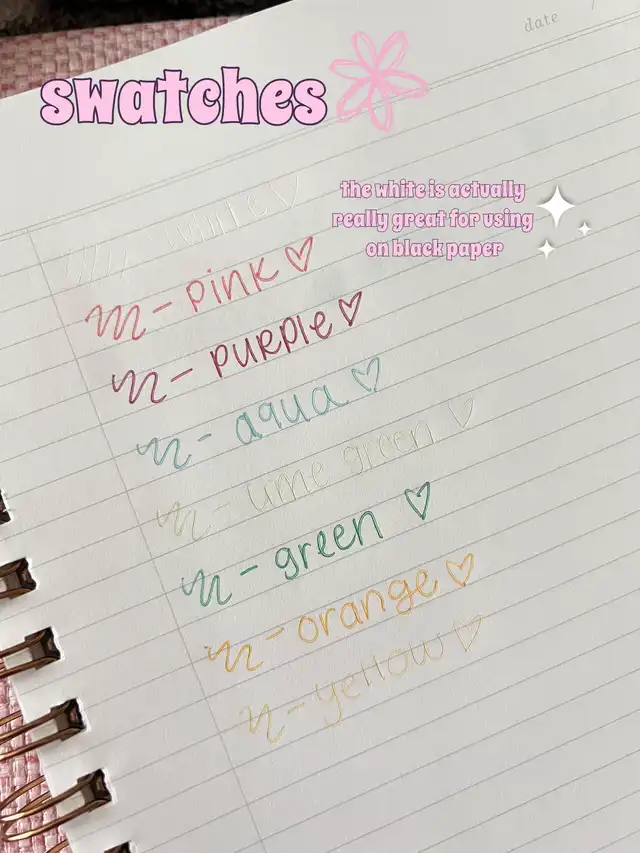 date /
swatches
the white is actually
really great for using
on black paper
white ♡
- pink ♡
- purple ♡
- aqua ♡
- lime green ♡
- green ♡
- orange ♡
- yellow ♡